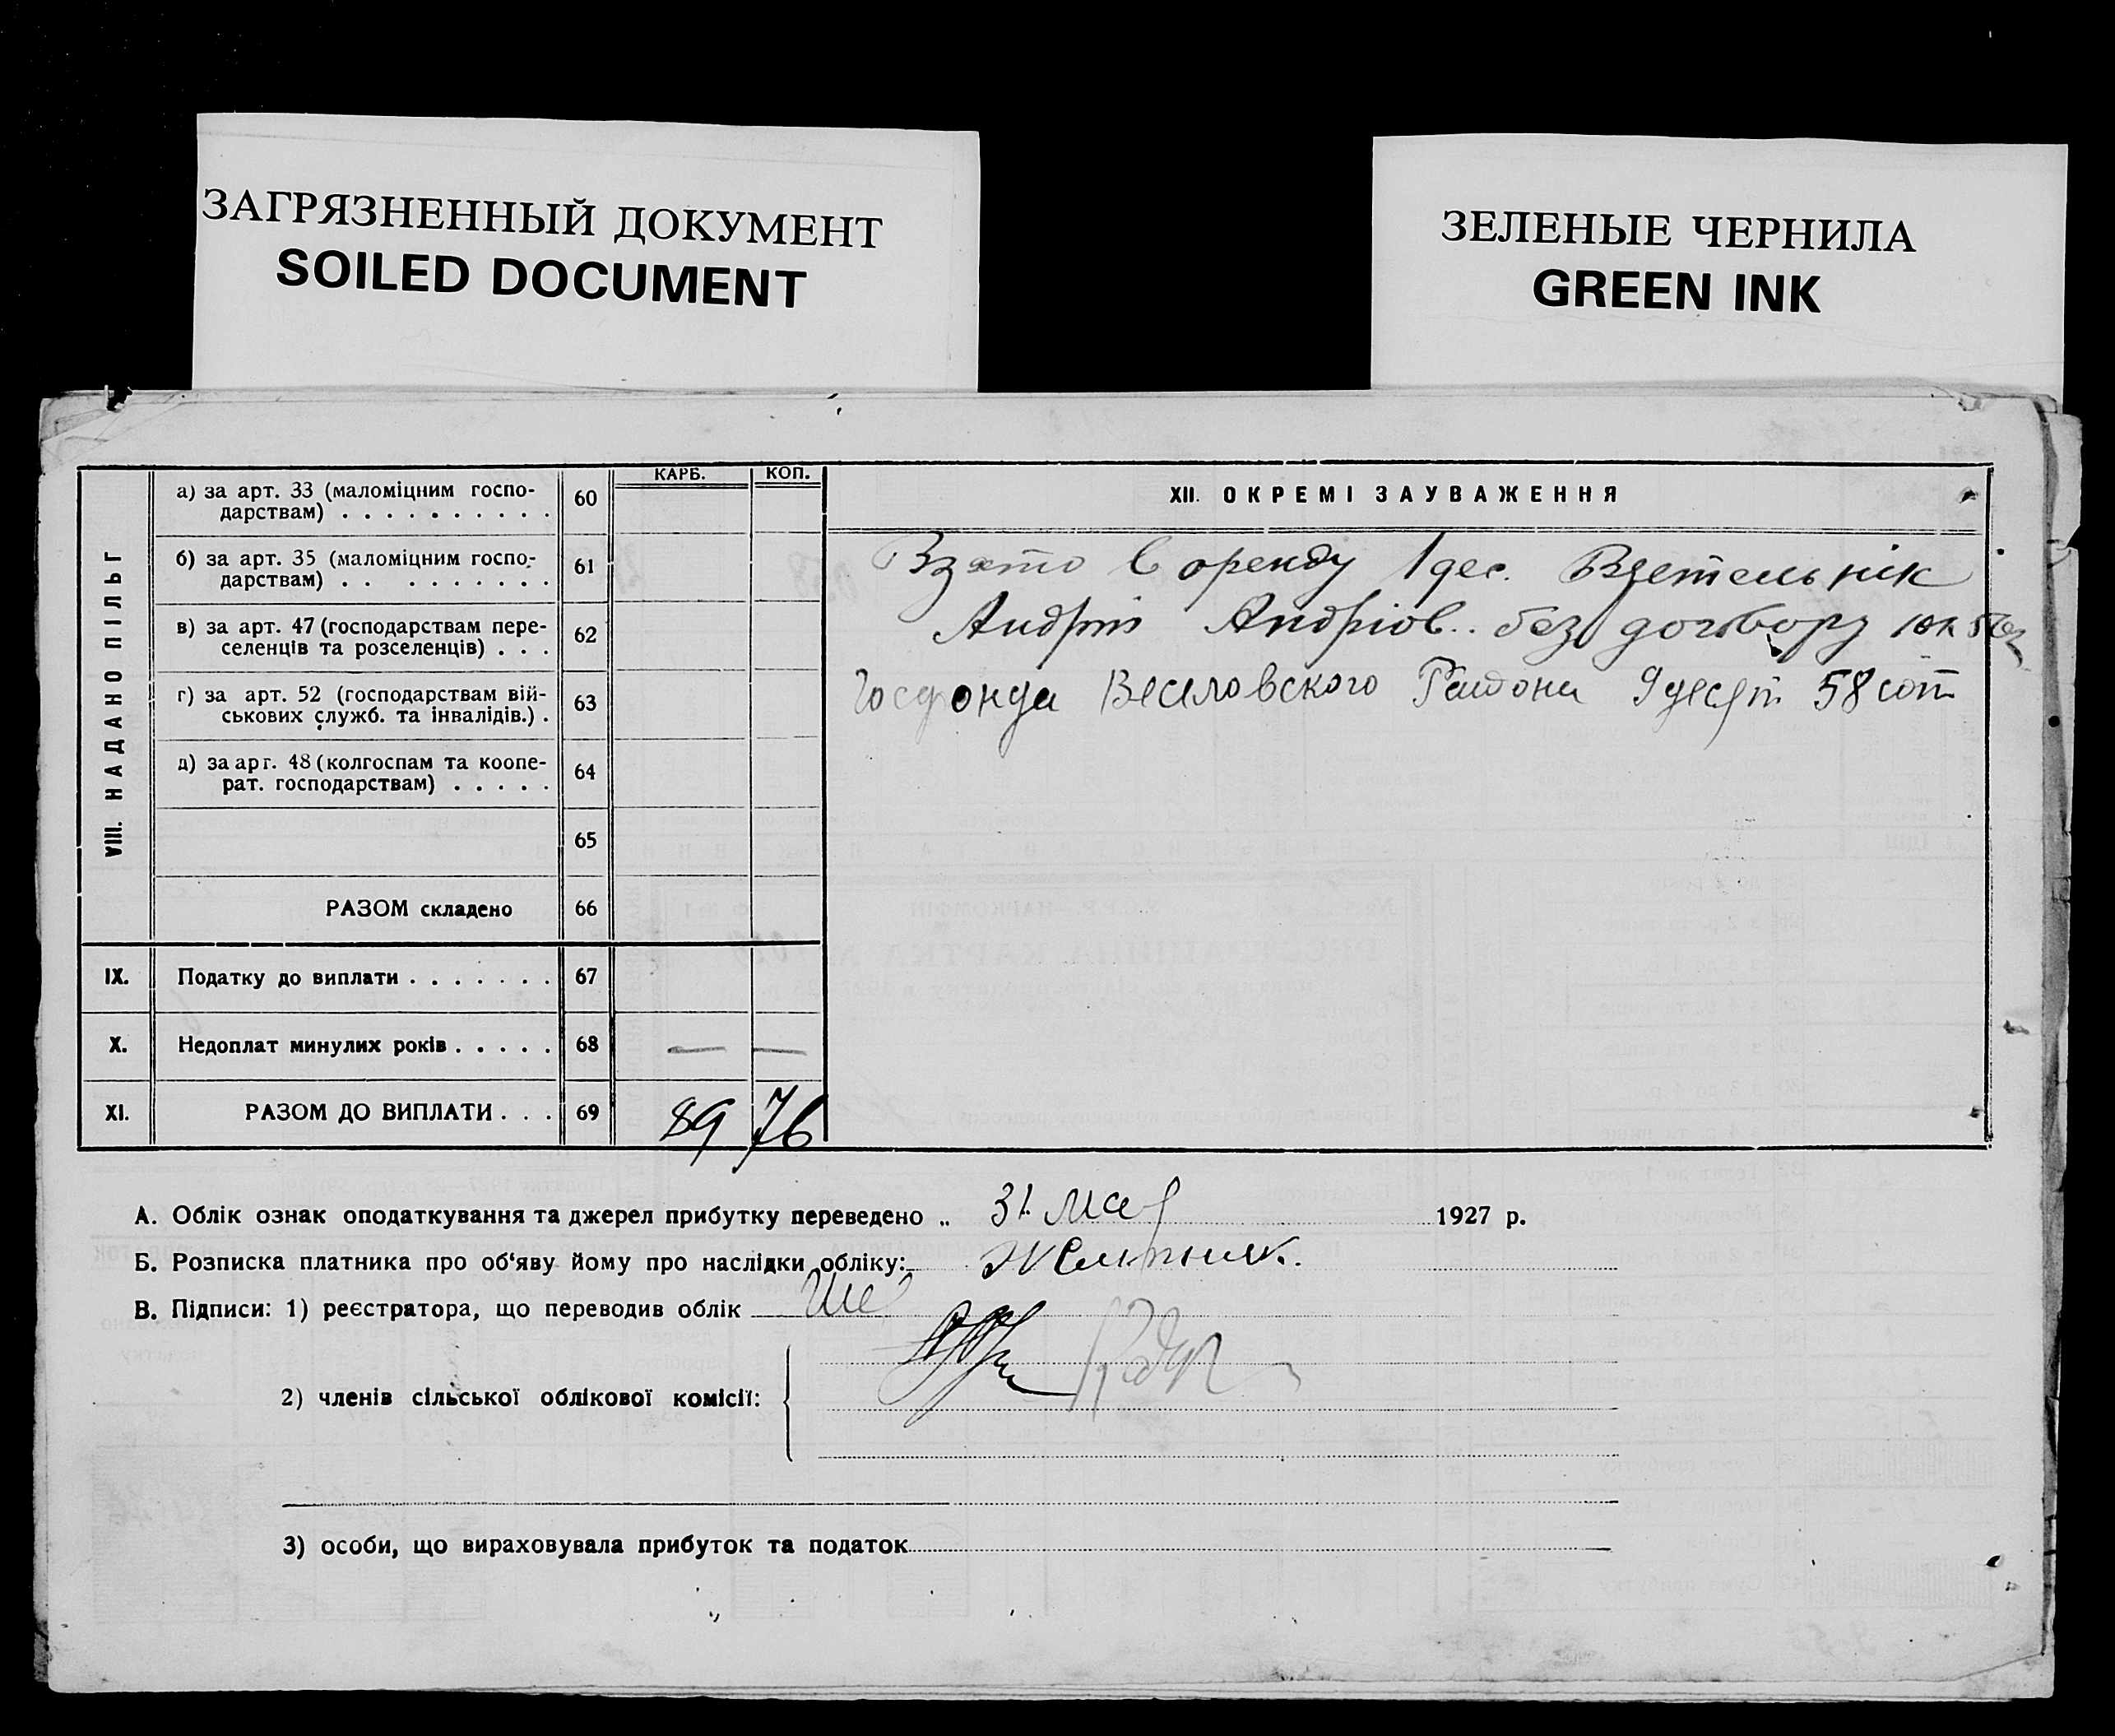 ЗАГРЯЗНЕННЫЙ ДОКУМЕНТ
SOILED DOCUMENT
ЗЕЛЕНЫЕ ЧЕРНИЛА
GREEN INK
VIII. НАДАНО ПІЛЬГ
КАРБ. КОП.
а) за арт. 33 (маломіцним госпо-
дарствам) . . . . . . . . . . 60
б) за арт. 35 (маломіцним госпо-
дарствам) . . . . . . . . . 61
в) за арт. 47 (господарствам пере-
селенців та розселенців) . . . 62
г) за арт. 52 (господарствам вій-
ськових служб. та інвалідів.) . 63
д) за арт. 48 (колгоспам та коопе-
рат. господарствам) . . . . . 64
65
РАЗОМ складено 66
IX. Податку до виплати . . . . . . . 67
X. Недоплат минулих років . . . . . 68 — —
XI. РАЗОМ ДО ВИПЛАТИ . . . 69 89 76
XII. ОКРЕМІ ЗАУВАЖЕННЯ
Взято в оренду 1 дес.
Андрій Андріов.. без договору
Госфонда Веселовского Района 9 десят 58 сот
А. Облік ознак оподаткування та джерел прибутку переведено „ 31. мая 1927 р.
Б. Розписка платника про об‘яву йому про наслідки обліку:
В. Підписи: 1) реєстратора, що переводив облік
2) членів сільської облікової комісії:
3) особи, що вираховувала прибуток та податок